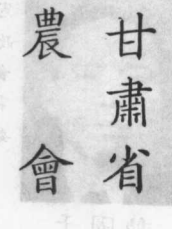 甘肅省
農會